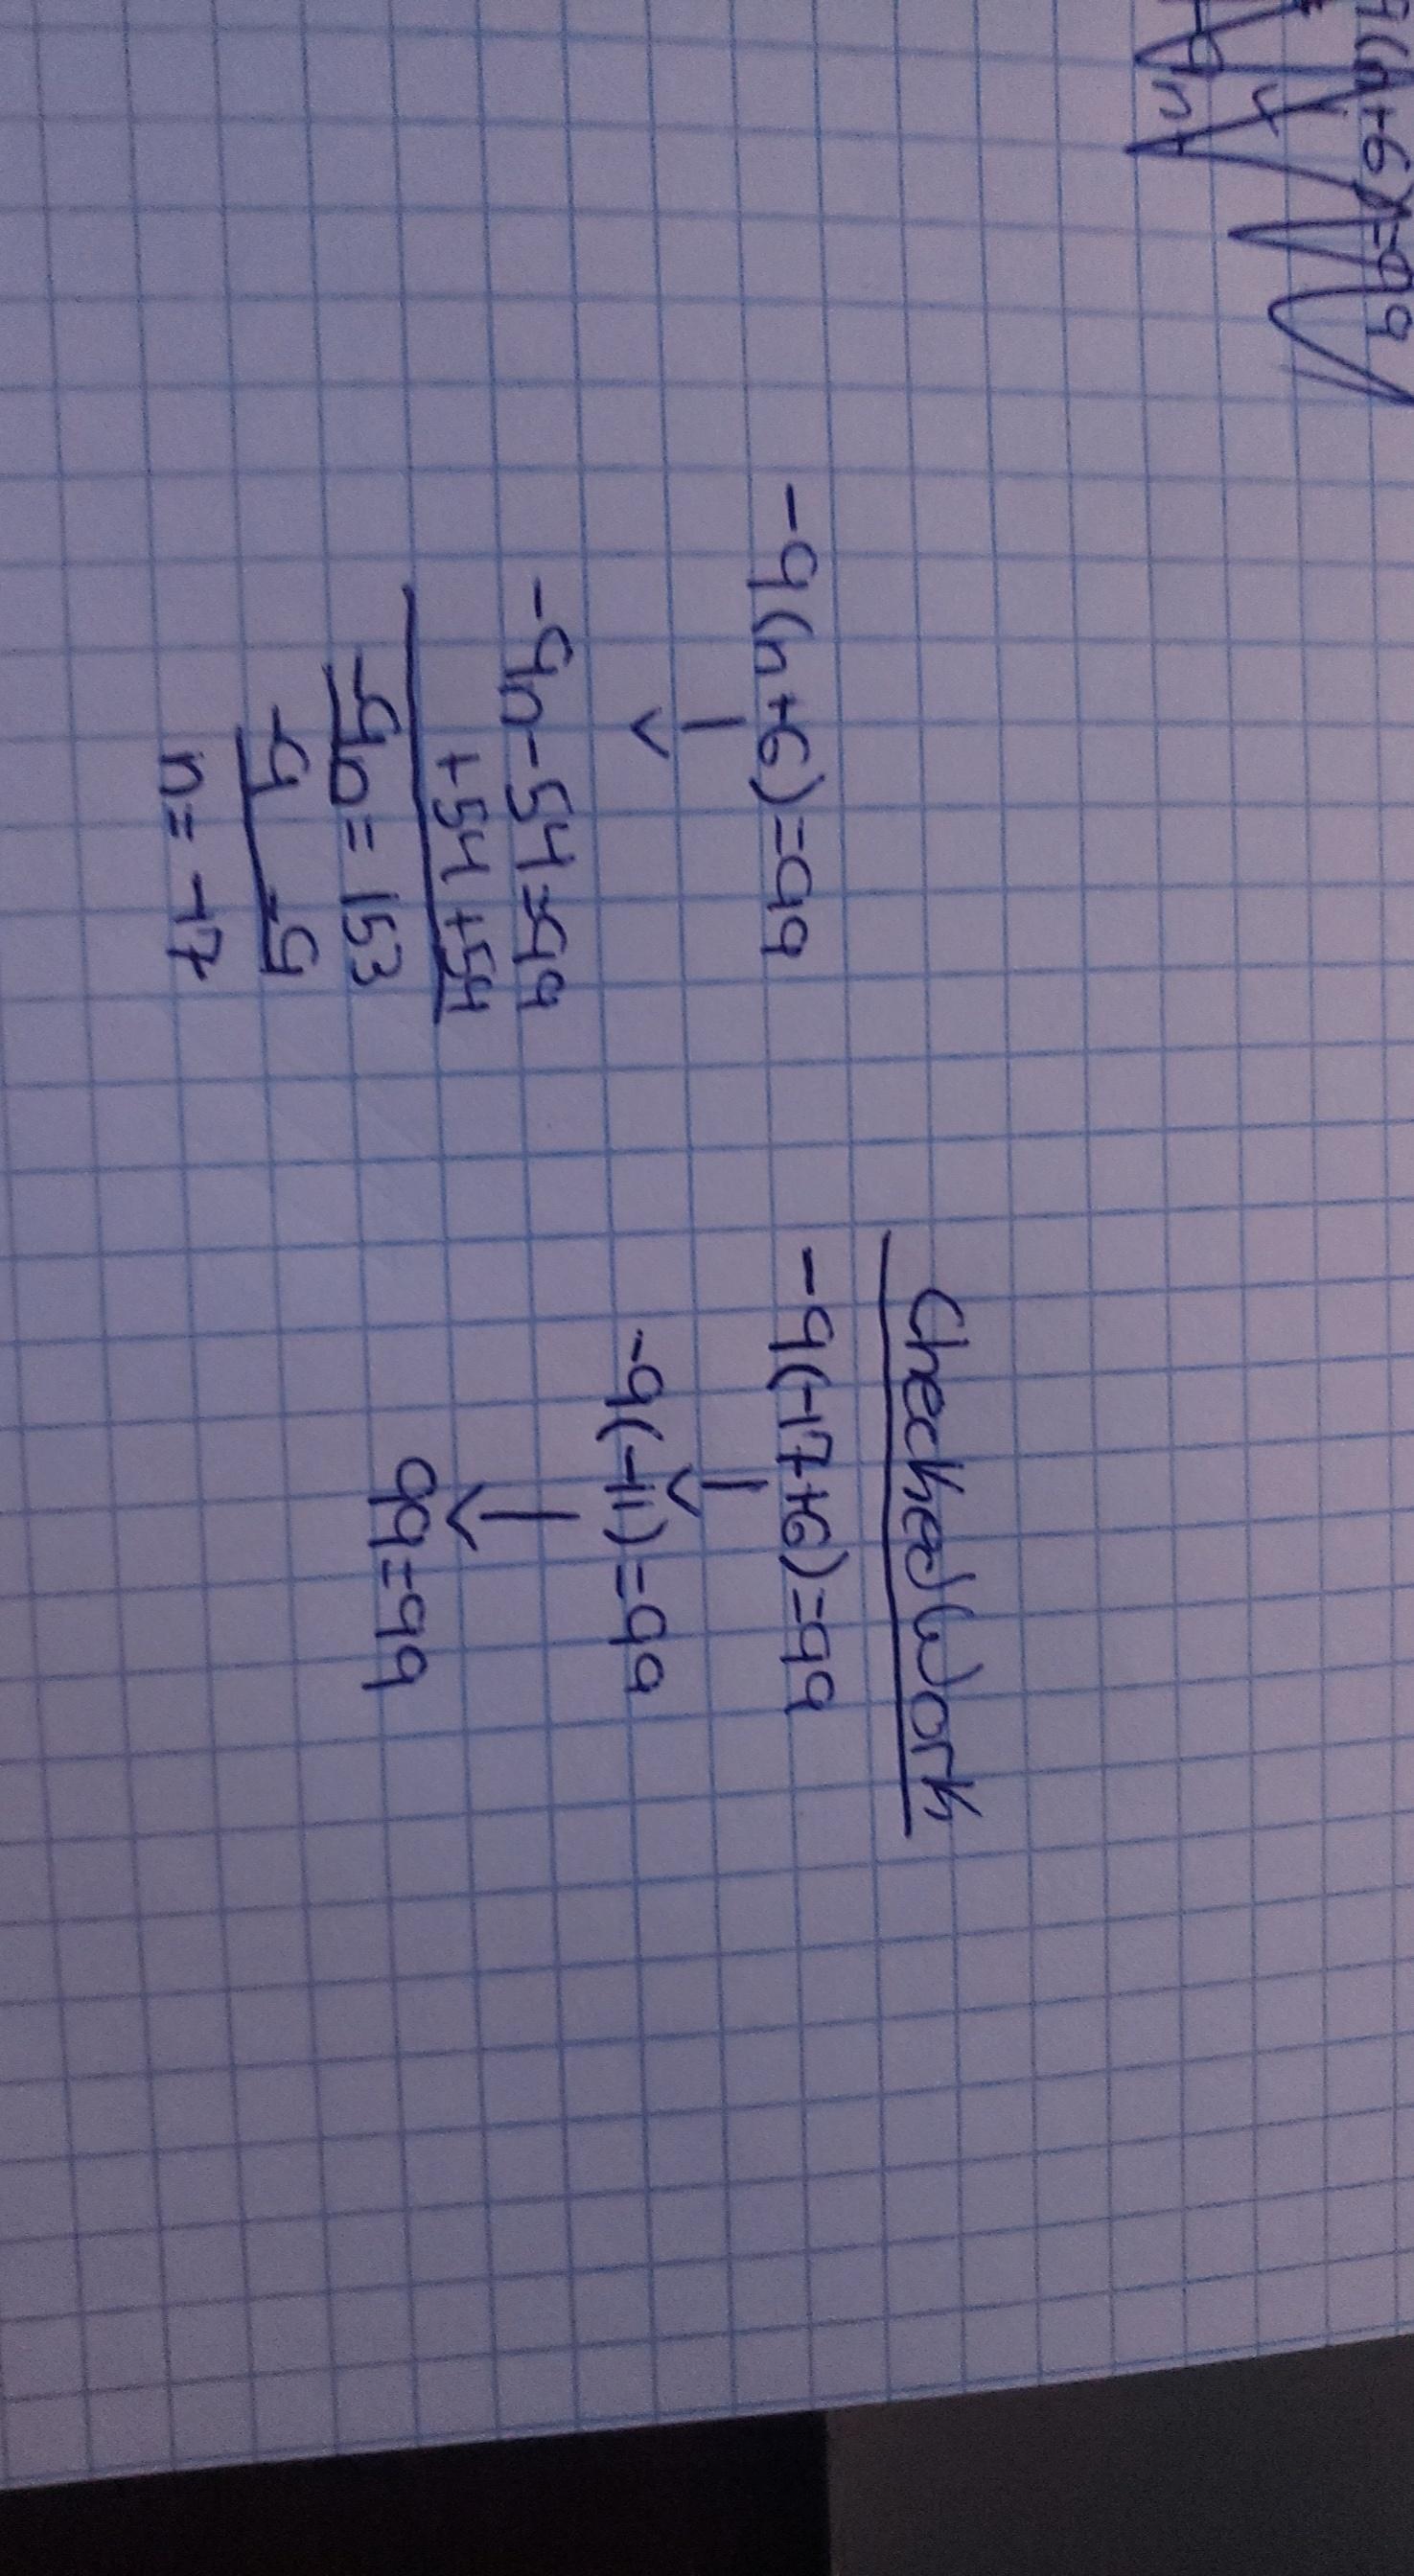 9(n+6)=99
9n
-9(n+6)=99
-9n-54=99
+54 +54
-9n=153
-9 -9
n=-17
Checked Work
-9(-17+6)=99
-9(-11)=99
99=99